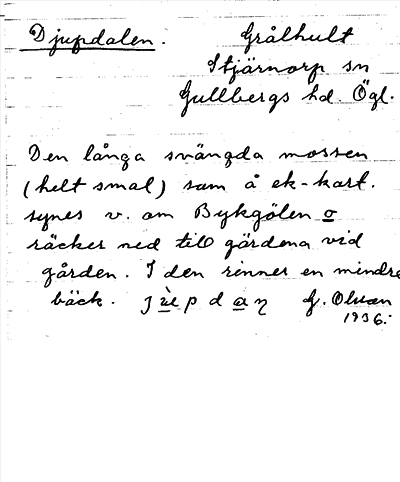 Djupdalen. Grålhult
Stjärnorp sn
Gullbergs hd. Ögl.
Den långa svängda mossen
(helt smal) som å ek-kart.
synes v. om Bykgölen o
räcker ned till gärdena vid
gården. I den rinner en mindre
bäck. G. Olson
1936.